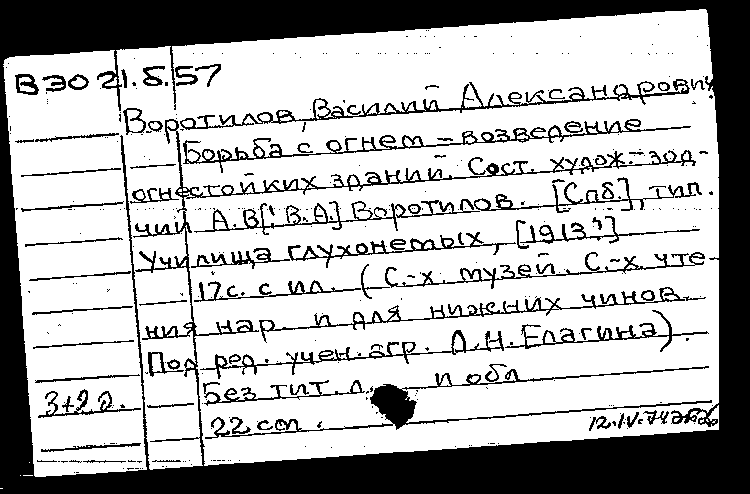 ВЭО 21.5.57
Воротилов, Василий Александрович
Борьба с огнем = возведение
огнестойких зданий. Сост. худож.-зод-
чий А.В[! В.А.] Воротилов. [Спб.], тип.
Училища глухонемых, [1913?]
17с. с ил. (С.-х. музей. С.-х. чте-
ния нар. и для нижних чинов.
Под ред. учен. агр. Д.Н. Елагина).
Без тит. л. и обл
3+2д.
22 см.
12.IV.74